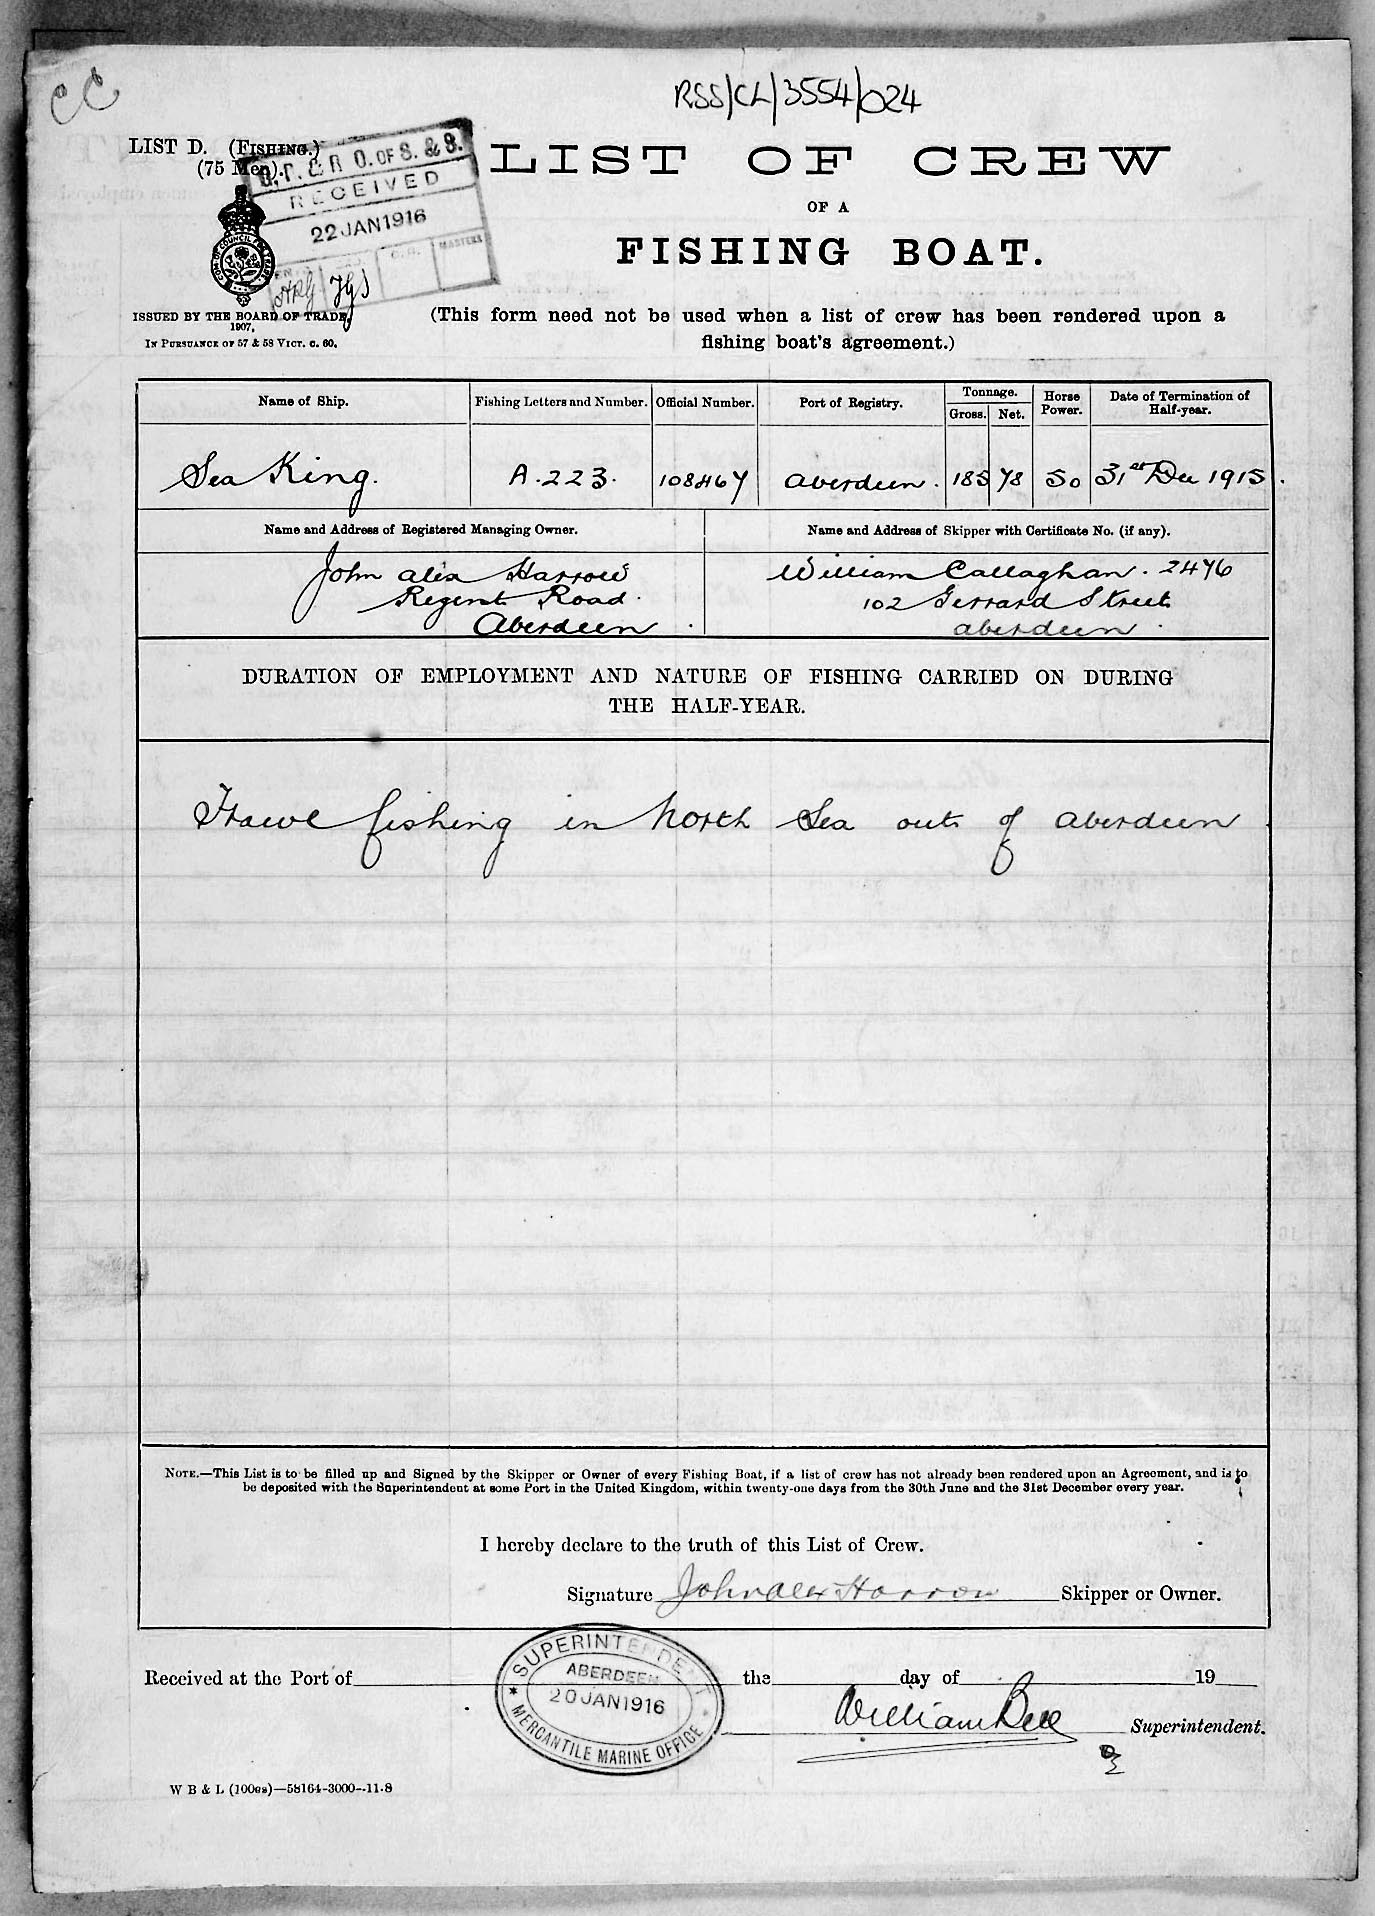 CC
RSS/CL/3554/024
LIST D. (FISHING.)
(75 Men).
G. R. O. OF S. & S.
RECEIVED
22 JAN 1916
MASTERS
LIST OF CREW
OF A
FISHING BOAT.
ISSUED BY THE BOARD OF TRADE,
1907,
IN PURSUANCE OF 57 & 58 VICT. C. 60.
(This form need not be used when a list of crew has been rendered upon a
fishing boat's agreement.)
Name of Ship. Fishing Letters and Number. Official Number. Port of Registry. Tonnage. Gross. Net. Horse Power. Date of Termination of Half-year.
Sea King. A.223. 108467 Aberdeen. 185 78 50 31st Dec 1915.
Name and Address of Registered Managing Owner. Name and Address of Skipper with Certificate No. (if any).
John Alex Harrow William Callaghan. 2476
Regent Road. 102 Gerrard Street
Aberdeen. aberdeen.
DURATION OF EMPLOYMENT AND NATURE OF FISHING CARRIED ON DURING
THE HALF-YEAR.
Trawl fishing in North Sea out of aberdeen.
NOTE.—This List is to be filled up and Signed by the Skipper or Owner of every Fishing Boat, if a list of crew has not already been rendered upon an Agreement, and is to
be deposited with the Superintendent at some Port in the United Kingdom, within twenty-one days from the 30th June and the 31st December every year.
I hereby declare to the truth of this List of Crew.
Signature John Alex Harrow Skipper or Owner.
Received at the Port of the day of 19
SUPERINTENDENT
ABERDEEN
20 JAN 1916
MERCANTILE MARINE OFFICE
William Bell Superintendent.
W B & L (100es)—58164-3000-.11-8